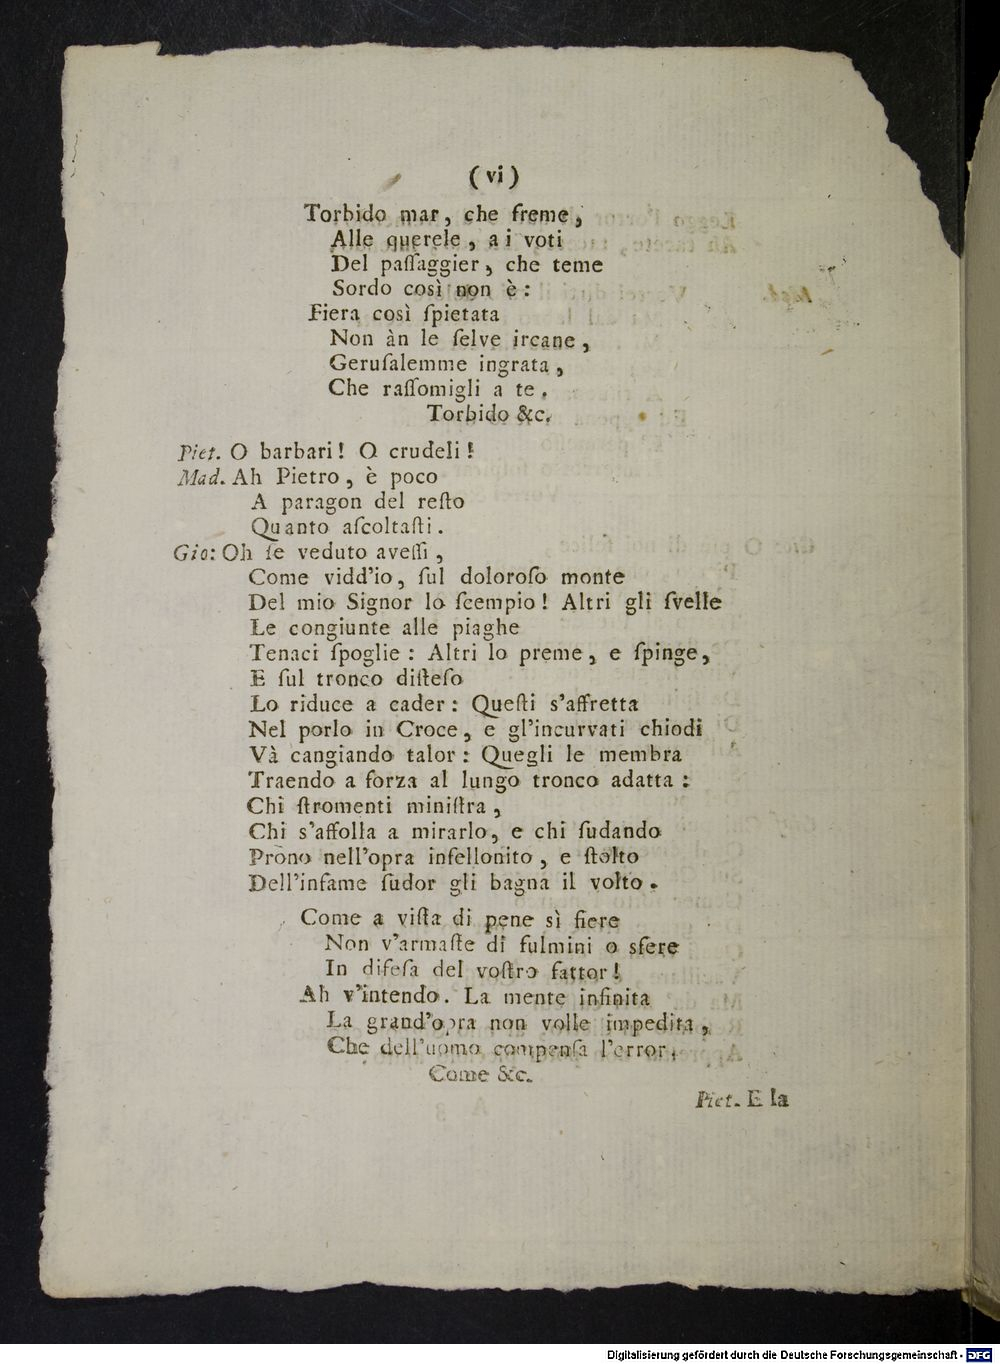 ( vi )
Torbido mar, che freme,
Alle querele, ai voti
Del paſſaggier, che teme
Sordo così non è:
Fiera così ſpietata
Non àn le ſelve ircane,
Geruſalemme ingrata,
Che raſſomigli a te.
Torbido &c.
Piet. O barbari! O crudeli!
Mad. Ah Pietro, è poco
A paragon del reſto
Quanto aſcoltaſti.
Gio: Oh ſe veduto aveſſi,
Come vidd'io, ſul doloroſo monte
Del mio Signor lo ſcempio! Altri gli ſvelle
Le congiunte alle piaghe
Tenaci ſpoglie: Altri lo preme, e ſpinge,
E ſul tronco diſteſo
Lo riduce a cader: Queſti s'affretta
Nel porlo in Croce, e gl'incurvati chiodi
Và cangiando talor: Quegli le membra
Traendo a forza al lungo tronco adatta:
Chi ſtromenti miniſtra,
Chi s'affolla a mirarlo, e chi ſudando
Prono nell'opra infellonito, e ſtolto
Dell'infame ſudor gli bagna il volto.
Come a viſta di pene sì fiere
Non v'armaſte di fulmini o sfere
In difeſa del voſtro fattor!
Ah v'intendo. La mente infinita
La grand'opra non volle impedita,
Che dell'uomo compenſa l'error.
Come &c.
Piet. E la
Digitalisierung gefördert durch die Deutsche Forschungsgemeinschaft - DFG